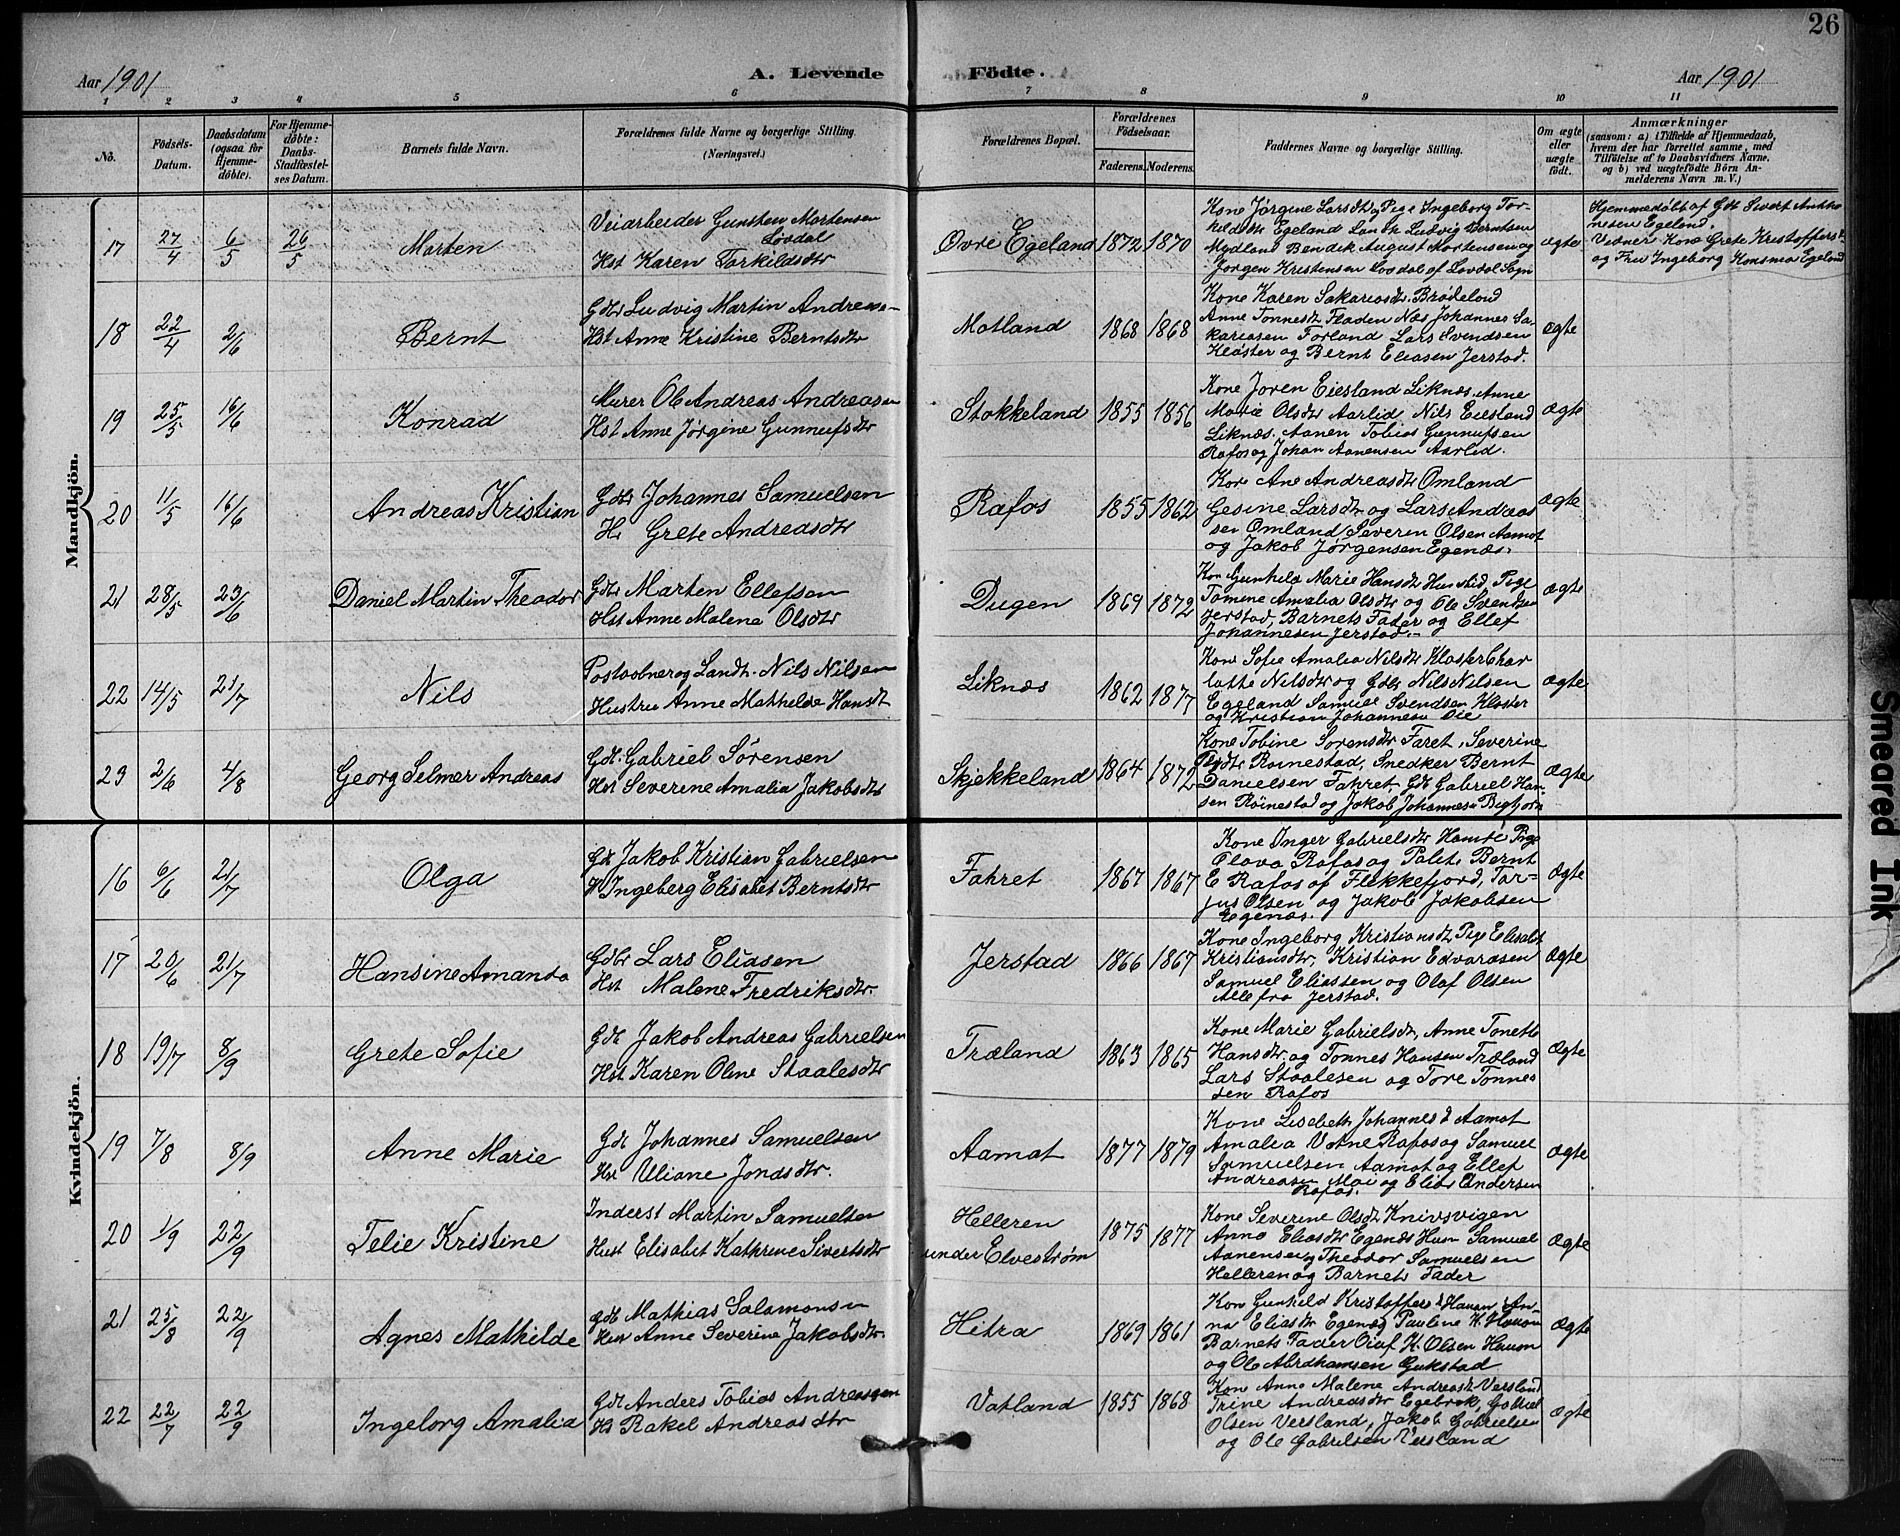 26
Aar 1901
A. Levende Födte.
Aar 1901
1 2 3 4 5 6 7 8 9 10 11
No.
Födsels-Datum.
Daabsdatum (ogsaa for Hjemmedöbte).
For Hjemmedöbte: Daabs-Stadfæstelses Datum.
Barnets fulde Navn.
Forældrenes fulde Navne og borgerlige Stilling. (Næringsvei.)
Forældrenes Bopæl.
Forældrenes Födselsaar.
Faderens. Moderens.
Faddernes Navne og borgerlige Stilling.
Om ægte eller uægte födt.
Anmærkninger
(saasom: a) i Tilfælde af Hjemmedaab, hvem der har forrettet samme, med Tilföielse af to Daabsvidners Navne, og b) ved uægtefödte Börn Anmelderens Navn m. V.)
Mandkjön.
17 27/4 6/5 26/5 Marten
Veiarbeider Gunsten Martensen Lövdal
Hst Karen Torkildsdtr
Øvre Egeland 1872 1870
Kone Jørgine Larsdtr Pige Ingeborg Tor-
kildsdtr Egeland Landh Ludvig Berntsen
Mydland Bendik August Mortensen og
Jørgen Kristensen Lovdal af Lovdal Sogn
ægte
Hjemmedøbt af Gdt Sivert
Egeland.
Vidner Kone Grete Kristoffers
og Fru Ingeborg Egeland
18 22/4 2/6 Bernt
Gdbr Ludvig Martin Andreas-
Hst Anne Kristine Berntsdtr
Motland 1868 1868
Kone Karen Sakariasdtr. Brødelond
Anne Tonnesdt Fladen Næs Johannes Sa-
kariasen Forland Lars Svendsen
Kløster og Bernt Eliasen Jerstad.
ægte
19 25/5 16/6 Konrad
Murer Ole Andreas Andreasen
Hst Anne Jørgine Gunnufsdtr
Stokkeland 1855 1856
Kone Joren Eiesland Liknæs, Anne
Marie Olsdtr Aarlid, Nils Eiesland
Liknæs. Aanen Tobias Gunnufsen
Rafos og Johan Aanensen Aarlid.
ægte
20 11/5 16/6 Andreas Kristian
Gdbr Johannes Samuelsen
H. Grete Andreasdtr
Rafos 1855 1862
Kone Ane Andreasdtr Omland
Gesine Larsdtr og Lars Andreas
sen Omland Severin Olsen Aamot
og Jakob Jørgensen Egenæs.
ægte
21 28/5 23/6 Daniel Martin Theodor
Gdbr Marten Ellefsen
Hst Anne Malene Olsdtr
Dugen 1869 1872
Kon Gunhild Marie Hansdtr Pige
Tomine Amalia Olsdtr og Ole Svendsen
Jerstad, Barnets Fader og Ellef
Johannesen Jerstad.-
ægte
22 14/5 21/7 Nils
Postaabner og Landh. Nils Nilsen
Hustru Anne Mathilde Hansdt
Liknæs 1862 1877
Kone Sofie Amalia Nilsdtr Kloster Char
lotte Nilsdtr og Gdbr Nils Nilsen
Egeland Samuel Svendsen Kloster
og Kristian Johannesen Øie
ægte
23 2/6 4/8 Georg Selmer Andreas
Gdt. Gabriel Sörensen
Hst Severine Amalia Jakobsdtr
Skjekkeland 1864 1872
Kone Tobine Sorensdtr Faret, Severine
Roinestad, Snedker Bernt
Danielsen Fahret Gdt Gabriel Han-
sen Röinestad og Jakob Johannesen
ægte
Kvindekjön.
16 6/6 21/7 Olga
Gdt Jakob Kristian Gabrielsen
H. Ingeberg Elisabet Berntsdtr
Fahret 1867 1867
Kone Inger Gabrielsdtr Pige
Flava Rafos og Polits. Bernt
E Rafos af Flekkefjord, Tor-
jus Olsen og Jakob Jakobsen
Egenæs.
ægte
17 20/6 21/7 Hansine Amanda
Gdbr Lars Eliasen
Hst Malene Fredriksdtr.
Jerstad 1866 1867
Kone Ingeborg Kristiansdt Pige Elisabet
Kristiansdtr, Kristian Edvardsen
Samuel Eliassen og Olaf Olsen
Alle fra Jerstad.
ægte
18 19/7 8/9 Grete Sofie
Gdt Jakob Andreas Gabrielsen
Hst Karen Oline Staalesdtr
Træland 1863 1865
Kone Marie Gabrielsdtr, Anne Tonette
Hansdtr og Tonnes Hansen Træland
Lars Staalesen og Tore Tonnes
sen Rafos
ægte
19 7/8 8/9 Anne Marie
Gdt Johannes Samuelsen
Hst Uliane Jonasdtr.
Aamot 1877 1879
Kone Lisebeth Johannesd Aamot
Amalia Votne Rafos og Samuel
Samuelsen Aamot og Ellef
Andreasen Moi og Elias Andersen
Rafos.
ægte
20 1/9 22/9 Telie Kristine
Inderst Martin Samuelsen
Hust Elisabet Kathrine Sivertsdtr
Helleren
under Elvestrøm 1875 1877
Kone Severine Olsdt Knivsvigen
Anna Eliasdtr Egenæs Samuel
Aanensen og Theodor Samuelsen
Helleren og Barnets Fader
ægte
21 25/8 22/9 Agnes Mathilde
Gdt Mathias Salamonsen
Hst Anne Severine Jakobsdtr
Hitra 1869 1861
Kon Gunhild Kristoffersd Hauan An-
na Eliasdt Egenæs Pauline K. Hauan
Barnets Fader Olaf K. Olsen Hauan
og Ole Abrahamsen Gukstad
ægte
22 22/7 22/9 Ingeborg Amalia
Gdt Anders Tobias Andreassen
Hst Rakel Andreasdtr
Vatland 1855 1868
Kone Anne Malene Andreasdt Versland
Trine Andreasdtr Egebrok, Gabriel
Olsen Versland, Jakob Gabrielsen
og Ole Gabrielsen Versland
ægte
Smeared Ink